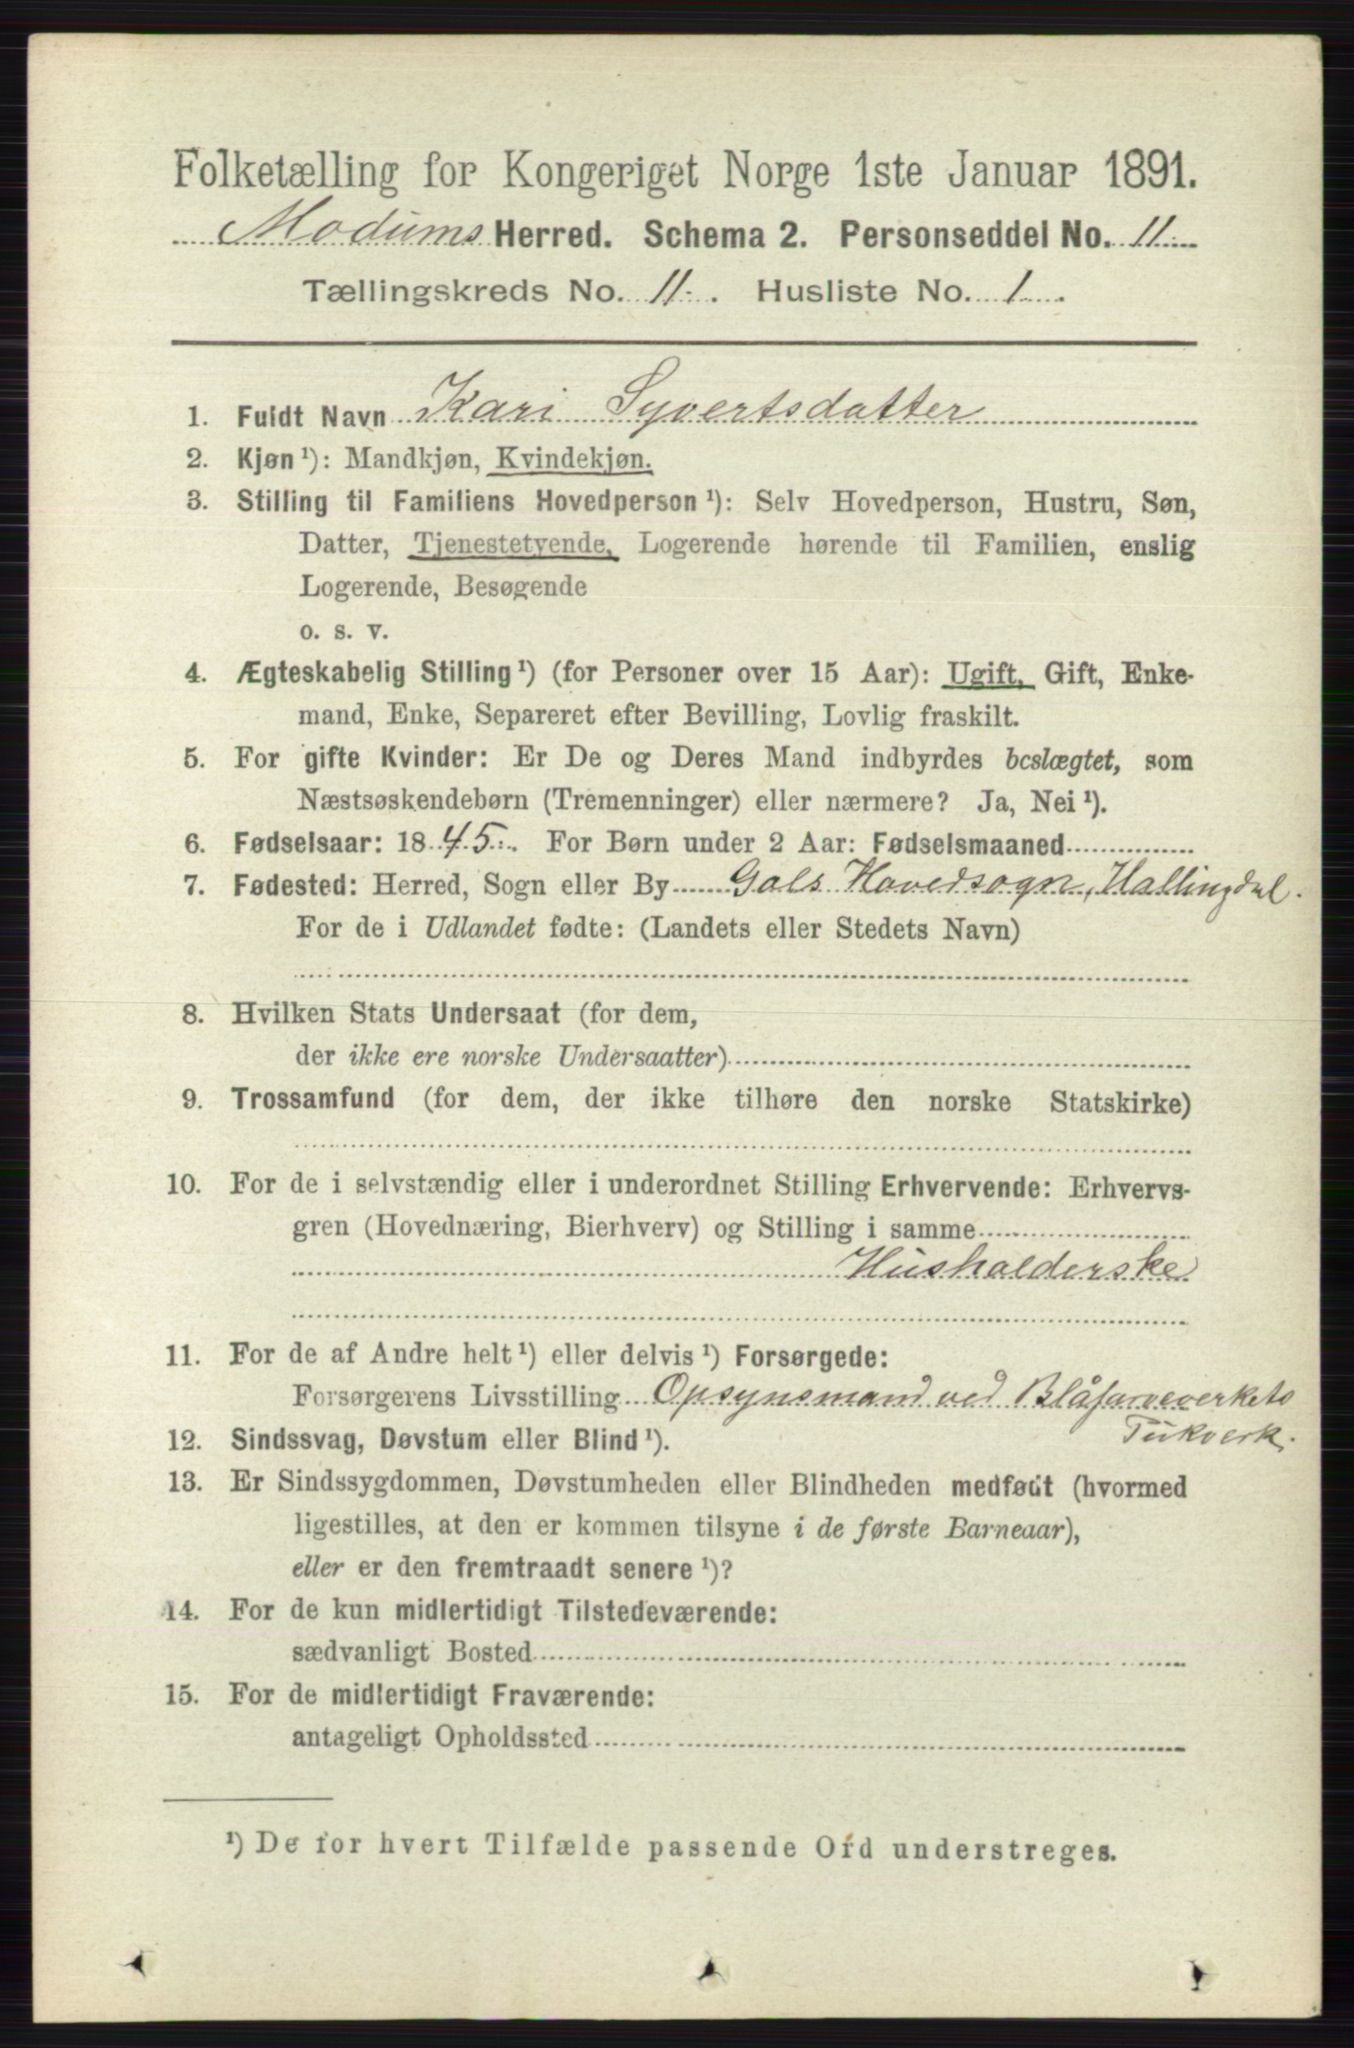 Folketælling for Kongeriget Norge 1ste Januar 1891.
Modums Herred. Schema 2. Personseddel No. 11.
Tællingskreds No. 11. Husliste No. 1.
1. Fuldt Navn Kari Syvertsdatter
2. Kjøn ¹): Mandkjøn, Kvindekjøn.
3. Stilling til Familiens Hovedperson ¹): Selv Hovedperson, Hustru, Søn,
Datter, Tjenestetyende, Logerende hørende til Familien, enslig
Logerende, Besøgende
o. s. v.
4. Ægteskabelig Stilling ¹) (for Personer over 15 Aar): Ugift, Gift, Enke-
mand, Enke, Separeret efter Bevilling, Lovlig fraskilt.
5. For gifte Kvinder: Er De og Deres Mand indbyrdes beslægtet, som
Næstsøskendebørn (Tremenninger) eller nærmere? Ja, Nei ¹).
6. Fødselsaar: 1845. For Børn under 2 Aar: Fødselsmaaned
7. Fødested: Herred, Sogn eller By Gols Hovedsogn, Hallingdal.
For de i Udlandet fødte: (Landets eller Stedets Navn)
8. Hvilken Stats Undersaat (for dem,
der ikke ere norske Undersaatter)
9. Trossamfund (for dem, der ikke tilhøre den norske Statskirke)
10. For de i selvstændig eller i underordnet Stilling Erhvervende: Erhvervs-
gren (Hovednæring, Bierhverv) og Stilling i samme
Husholderske
11. For de af Andre helt ¹) eller delvis ¹) Forsørgede:
Forsørgerens Livsstilling Opsynsmand ved Blåfarveverkets
12. Sindssvag, Døvstum eller Blind ¹).
13. Er Sindssygdommen, Døvstumheden eller Blindheden medfødt (hvormed
ligestilles, at den er kommen tilsyne i de første Barneaar),
eller er den fremtraadt senere ¹)?
14. For de kun midlertidigt Tilstedeværende:
sædvanligt Bosted
15. For de midlertidigt Fraværende:
antageligt Opholdssted
¹) De for hvert Tilfælde passende Ord understreges.